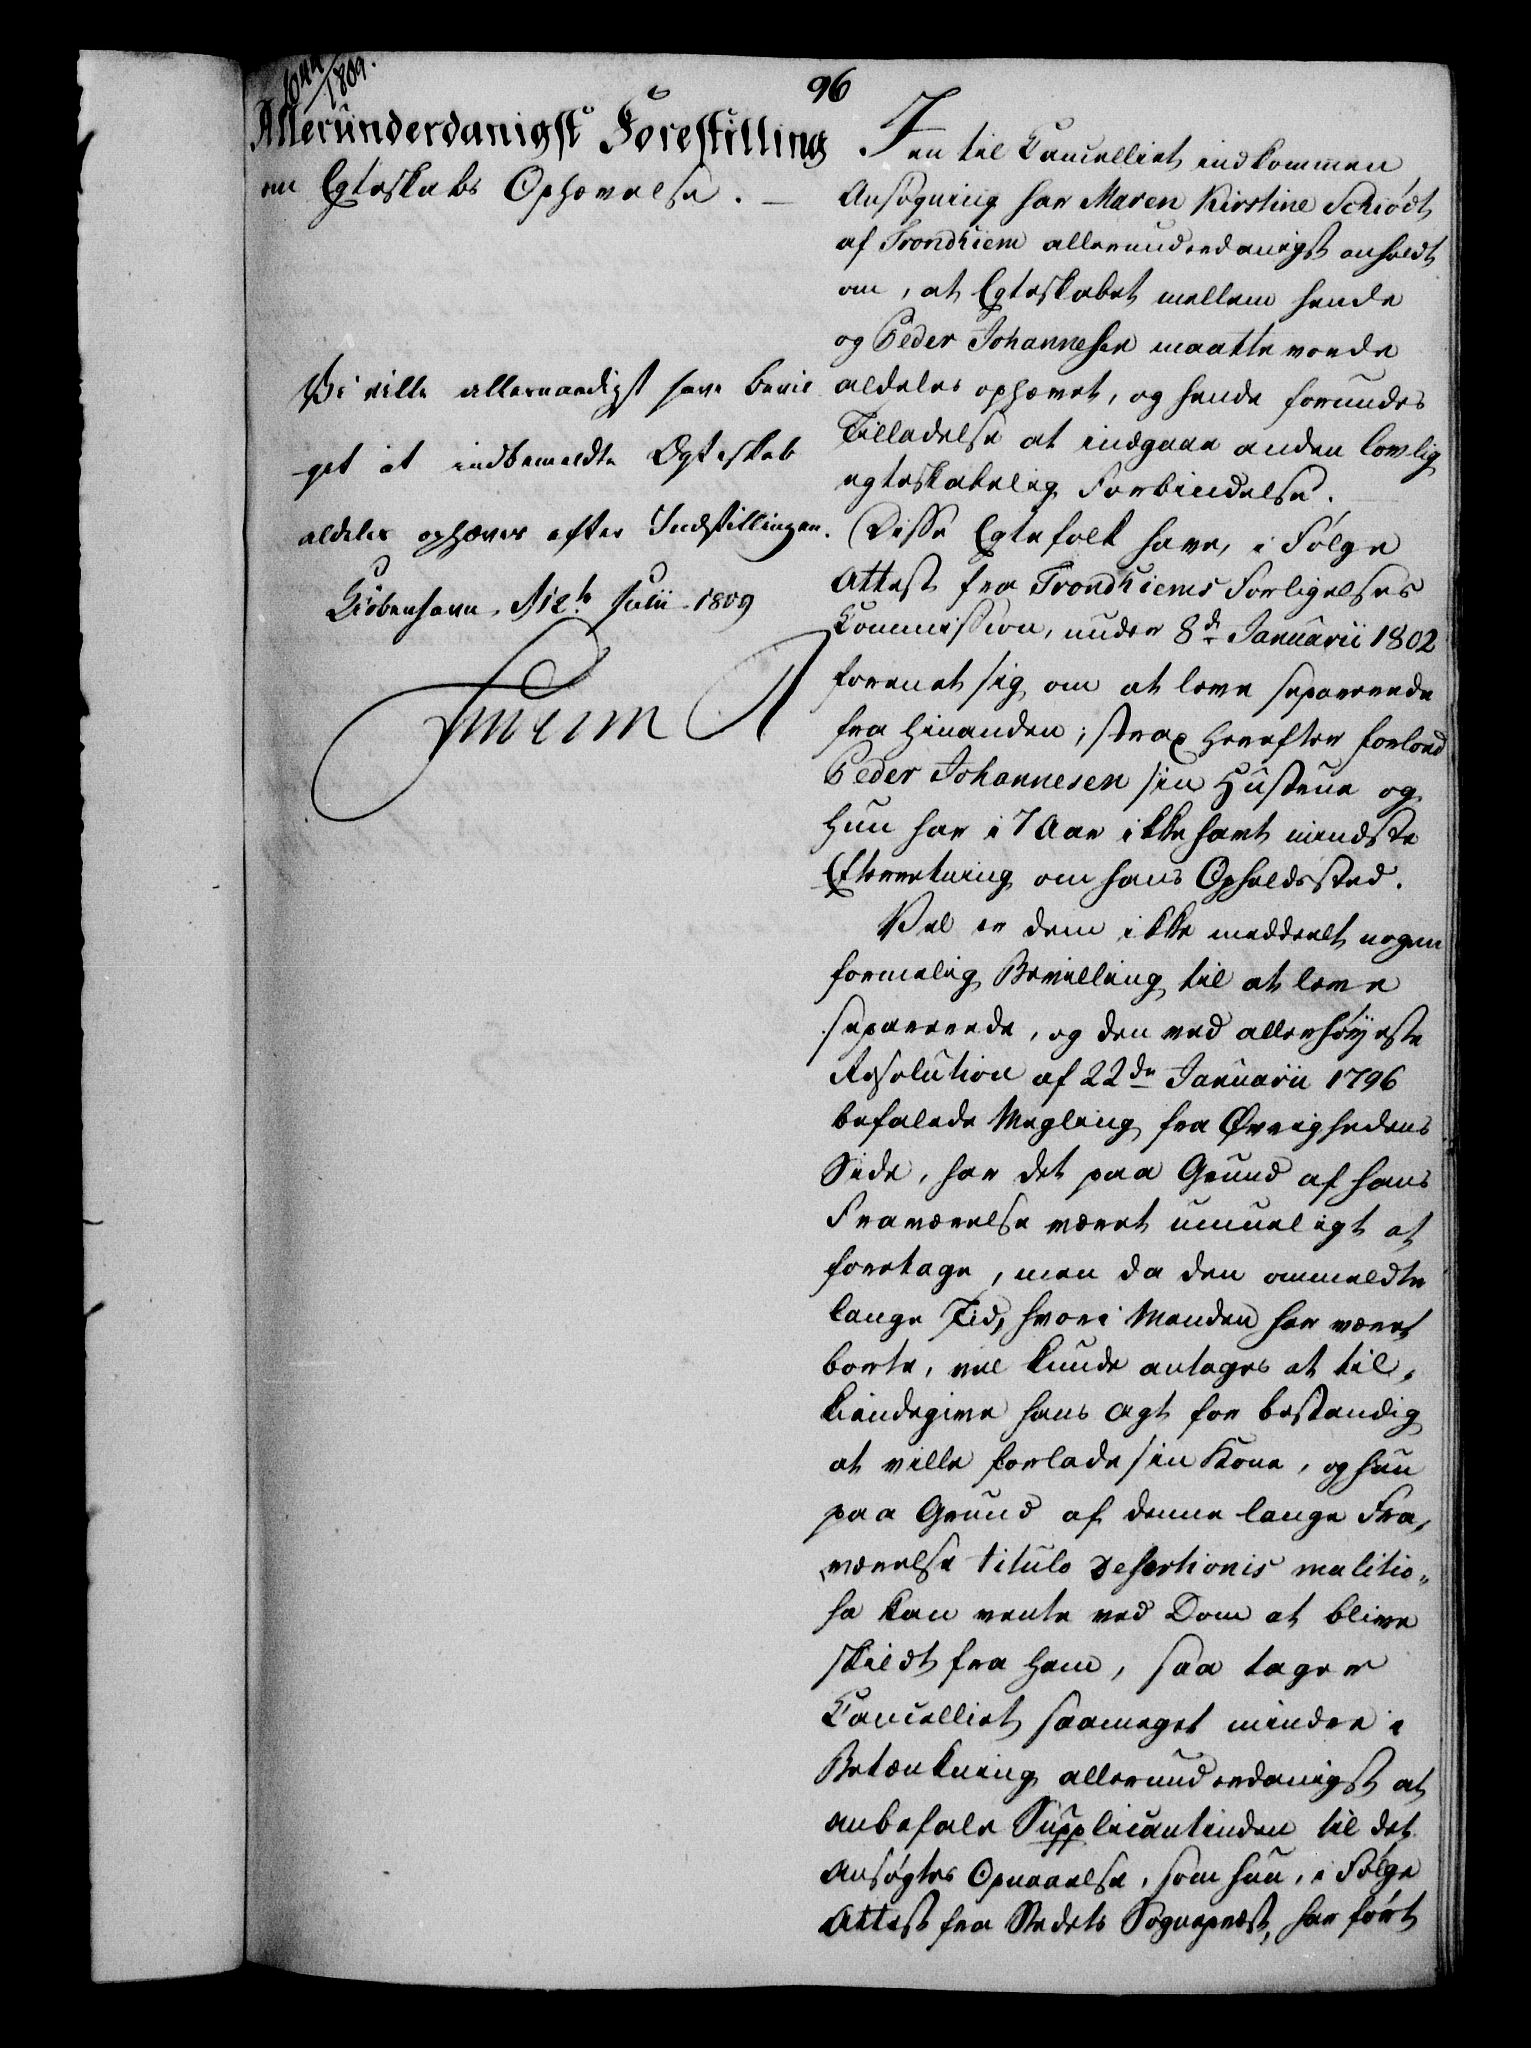 1044/1809.
96
Allerunderdanigst Forestilling
om Egteskabs Ophævelse. —
Vi ville allernaadigst have bevil
get at indbemeldte Ægteskab
aldeles ophæves efter Indstillingen.
Kiöbenhavn d 12te Julii 1809
Frederik R
I en til Cancelliet indkommen
Ansøgning har Maren Kirstine Schiödt
af Trondhiem allerunderdanigst anholdt
om, at Egteskabet mellem hende
og Peder Johannesen maatte vorde
aldeles ophævet, og hende forundes
Tilladelse at indgaae anden lovlig
egteskabelig Forbindelse.
Disse Egtefolk have, i Følge
Attest fra Trondhiems Forligelses
Kommission, under 8de Januarii 1802
forenet sig om at leve separerede
fra hinanden; strax herefter forlod
Peder Johannesen sin Hustrue og
hun har i 7 Aar ikke havt mindste
Efterretning om hans Opholdssted.
Vel er dem ikke meddeelt nogen
formelig Bevilling til at leve
separerede, og den ved allerhöyeste
Resolution af 22de Januarii 1796
befalede Megling fra Øvrighedens
Side, har det paa Grund af hans
Fraværelse været umueligt at
foretage, men da den ommeldte
lange Tid, hvori Manden har været
borte, vel kunde antages at til„
kiendegive hans Agt for bestandig
at ville forlade sin Kone, og hun
paa Grund af denne lange Fra„
værelse titulo desertionis malitio„
sa kan vente ved Dom at blive
skildt fra ham, saa tager
Cancelliet saameget mindre i
Betænkning allerunderdanigst at
anbefale Supplicantinden til det
Ansøgtes Opnaaelse, som hun, i Følge
Attest fra Stedets Sognepræst, har ført